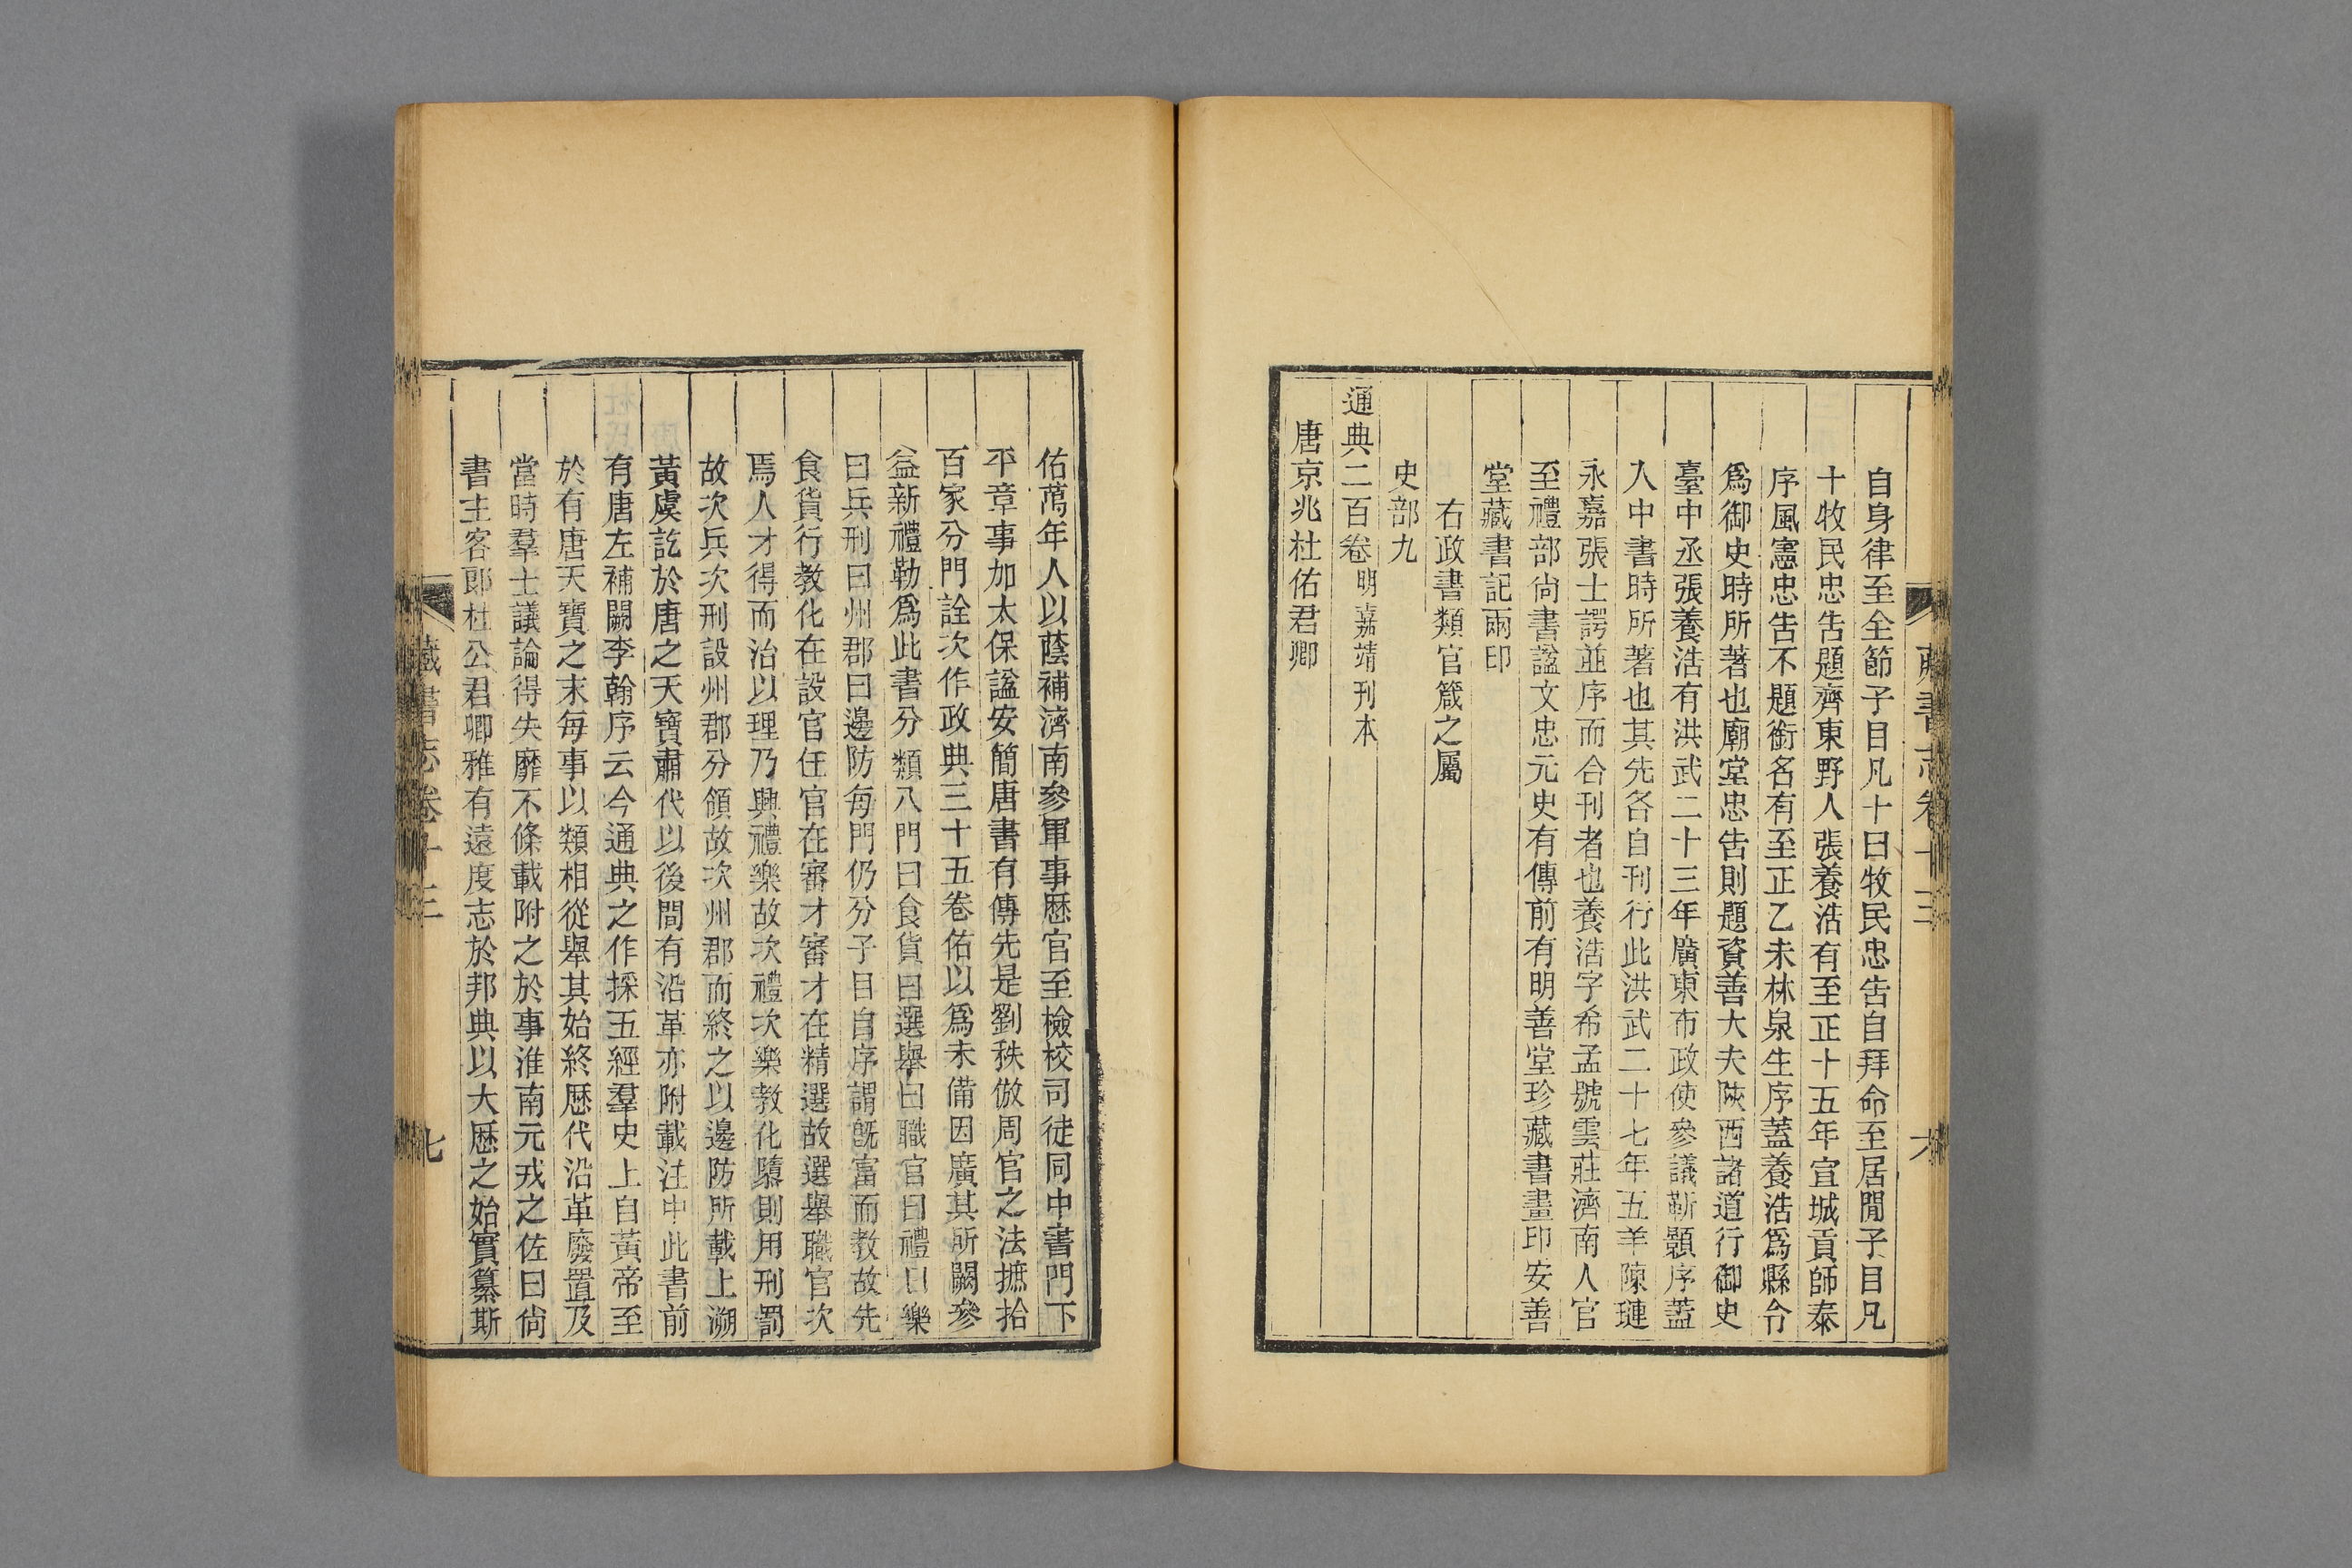 藏書志卷十三
六
自身律至全節子目凡十曰牧民忠告自拜命至居閒子目凡
十牧民忠告題齊東野人張養浩有至正十五年宣城貢師泰
序風憲忠告不題銜名有至正乙未林泉生序蓋養浩爲縣令
爲御史時所著也廟堂忠告則題資善大夫陝西諸道行御史
臺中丞張養浩有洪武二十三年廣東布政使參議靳顥序蓋
入中書時所著也其先各自刊行此洪武二十七年五羊陳璉
永嘉張士諤並序而合刊者也養浩字希孟號雲莊濟南人官
至禮部尚書謚文忠元史有傳前有明善堂珍藏書畫印安善
堂藏書記兩印
右政書類官箴之屬
史部九
通典二百卷明嘉靖刊本
唐京兆杜佑君卿
佑萬年人以蔭補濟南參軍事歷官至檢校司徒同中書門下
平章事加太保謚安簡唐書有傳先是劉秩倣周官之法摭拾
百家分門詮次作政典三十五卷佑以爲未備因廣其所闕參
益新禮勒爲此書分類八門曰食貨曰選舉曰職官曰禮曰樂
曰兵刑曰州郡曰邊防每門仍分子目自序謂旣富而教故先
食貨行教化在設官任官在審才審才在精選故選舉職官次
焉人才得而治以理乃興禮樂故次禮次樂教化隳則用刑罰
故次兵次刑設州郡分領故次州郡而終之以邊防所載上溯
黃虞訖於唐之天寶肅代以後間有沿革亦附載注中此書前
有唐左補闕李翰序云今通典之作採五經羣史上自黃帝至
於有唐天寶之末每事以類相從舉其始終歷代沿革廢置及
當時羣士議論得失靡不條載附之於事淮南元戎之佐曰尙
書主客郎杜公君卿雅有遠度志於邦典以大歷之始實纂斯
藏書志卷十三
七